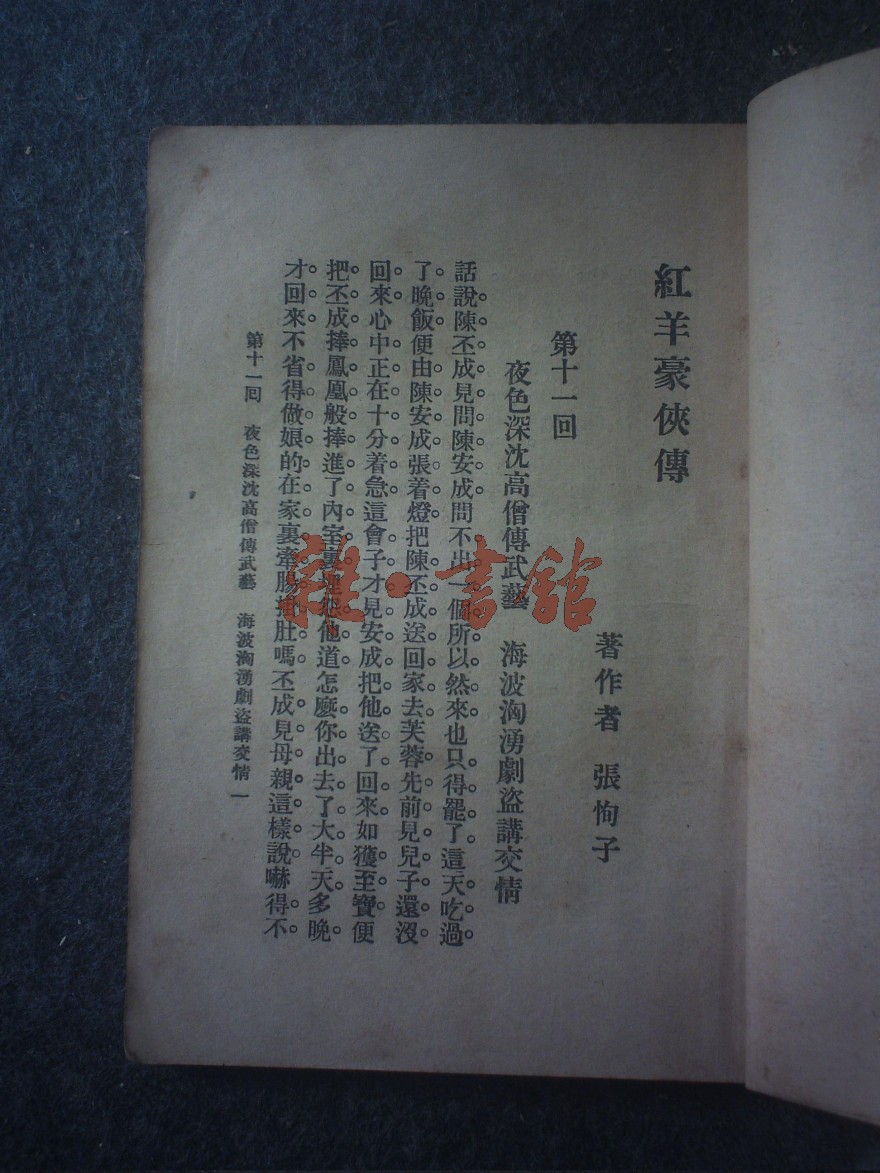 紅羊豪俠傳
著作者 張恂子
第十一回
夜色深沈高僧傳武藝 海波洶湧劇盜講交情
話說陳丕成見問陳安成問不出一個所以然來也只得罷了這天吃過
了晚飯便由陳安成張着燈把陳丕成送回家去芙蓉先前見兒子還沒
回來心中正在十分着急這會子才見安成把他送了回來如獲至寶便
把丕成捧鳳凰般捧進了內室裏埋怨他道怎麼你出去了大半天多晚
才回來不省得做娘的在家裏牽腸掛肚嗎丕成見母親這樣說嚇得不
第十一回 夜色深沈高僧傳武藝 海波洶湧劇盜講交情 一
雜·書館